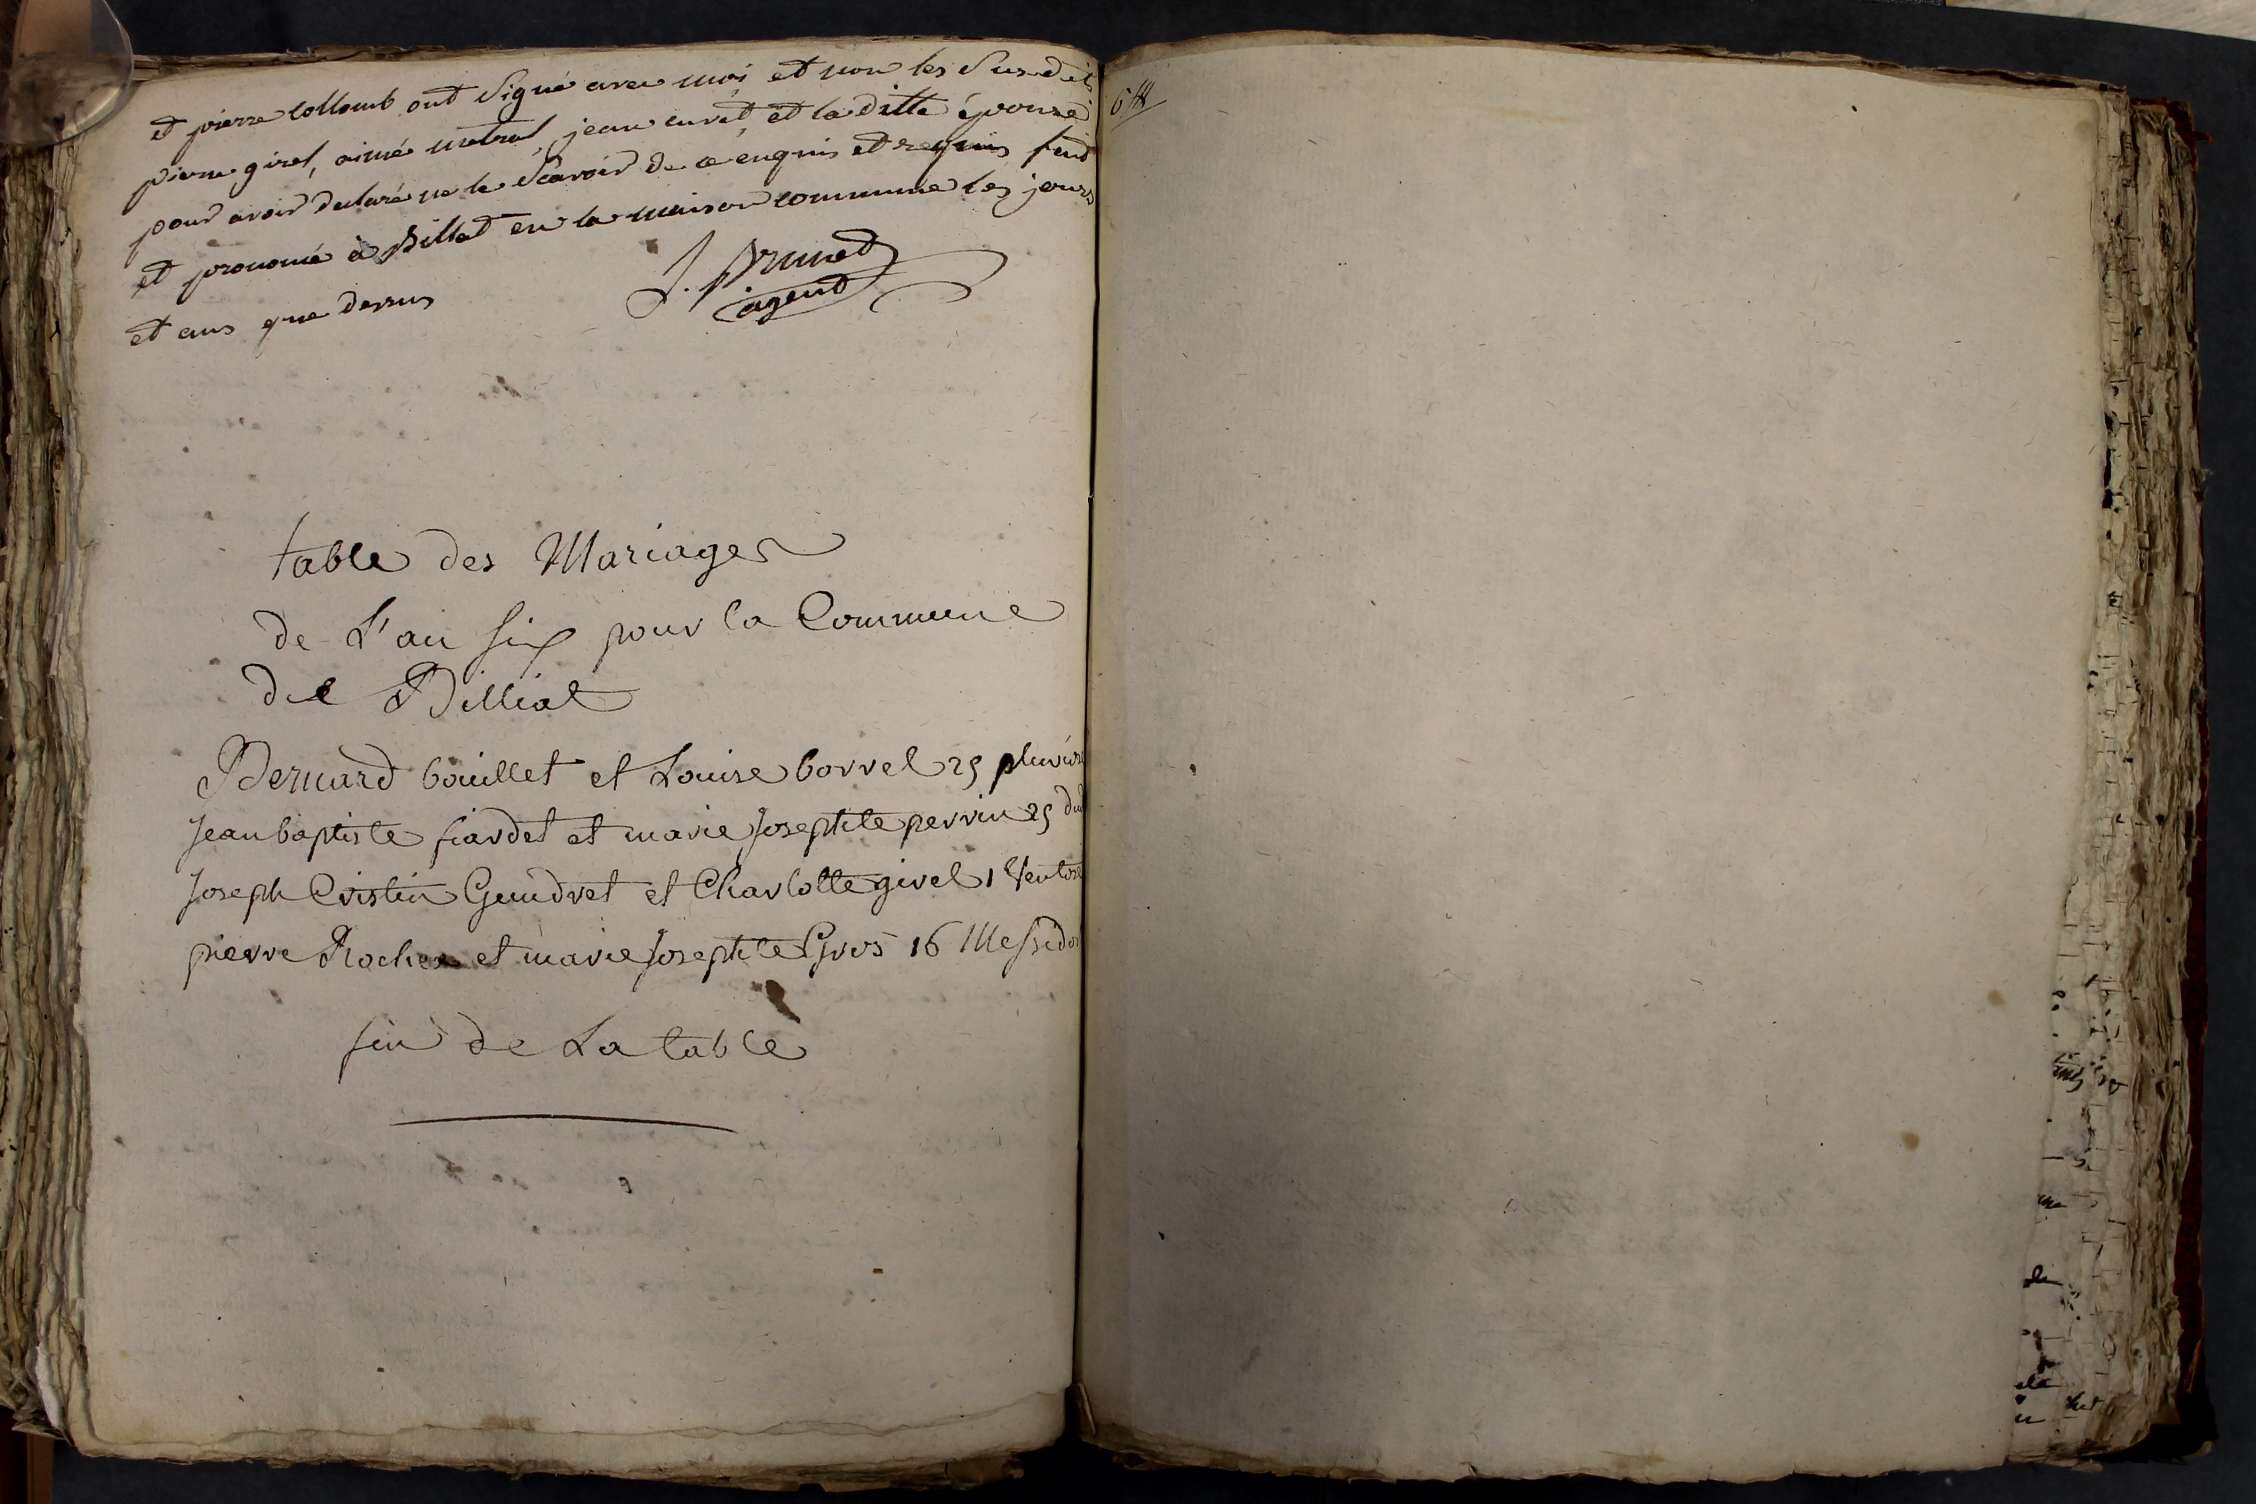 et pierre Collomb ont Signé avec moi et non les Susdits
pierre girel, aimé metral, jean curvet, et la ditte épouse
pour avoir declaré ne le Scavoir de ce enquis et requis fait
et prononcé à Billat en la maison commune les jours
et ans que dessus
J. Brunet
agent
table des Mariages
de L'an six pour la Commune
de Billiat
Bernard bouillet et Louise borrel 25 pluviose
Jean baptiste fiardet et marie Josephte perrin 25 dud
Joseph Cristin Gendret et Charlotte girel 1 Ventose
pierre Rochex et marie Josephte Gros 16 Messidor
fin de La table